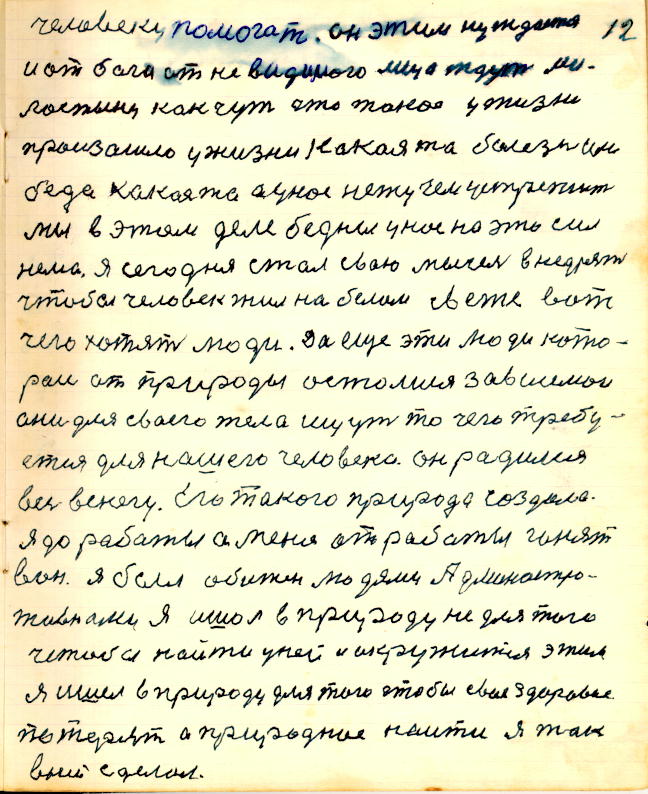 человеку помогат. он этим нуждается 12
и от бога от не видимого лица ждут ми-
лостыни как чут что такое у жизни
произашло у жизни какаята болезн или
беда какаята а у нас нету чем устрепит
мы в этом деле бедны у нас на это сил
нема. Я сегодня стал сваю мысел внедрят
чтобы человек жил на белом свете вот
чего хотят люди. Да еще эти люди кото-
раи от природы осталися зависемои
они для своего тела ищут то чего требу-
ется для нашего человека. он радился
весь в снегу. Его такого природа создала.
я до работы а меня от работы гонят
вон. я был обижен людями Админастра-
тивнами Я ишол в природу не для того
чтобы найти у ней и окружится этим
я ишел в природу для того чтобы свае здоровье
потерят а природное наити я так
в ней сделал.